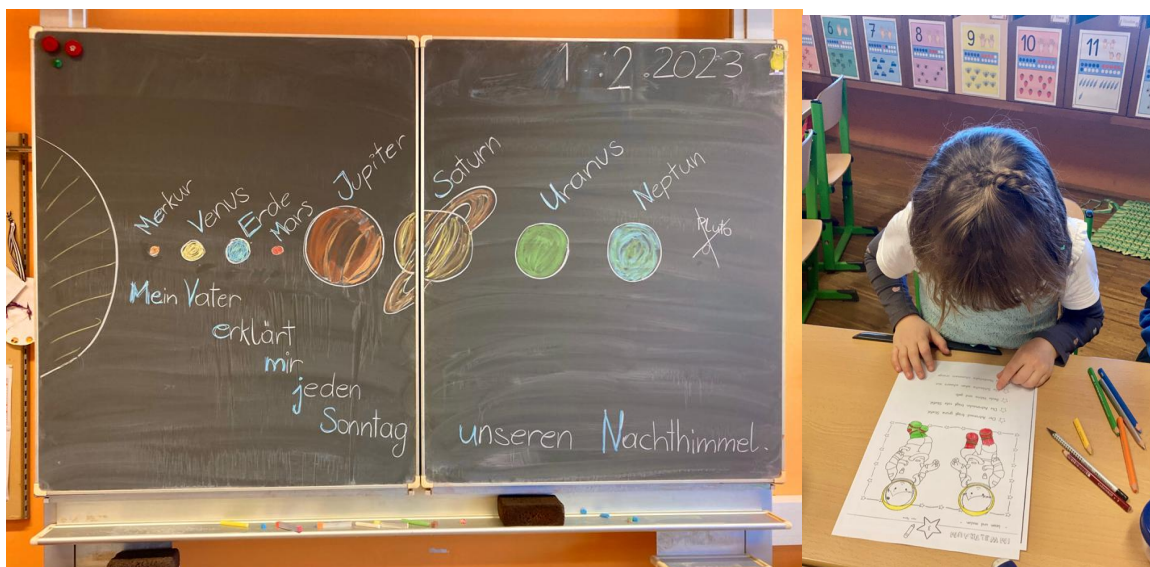 1.2.2023
Merkur
Venus
Erde
Mars
Jupiter
Saturn
Uranus
Neptun
Pluto
Mein Vater
erklärt
mir
jeden
Sonntag
unseren Nachthimmel.
6
7
8
9
10
11
IM WELTRAUM